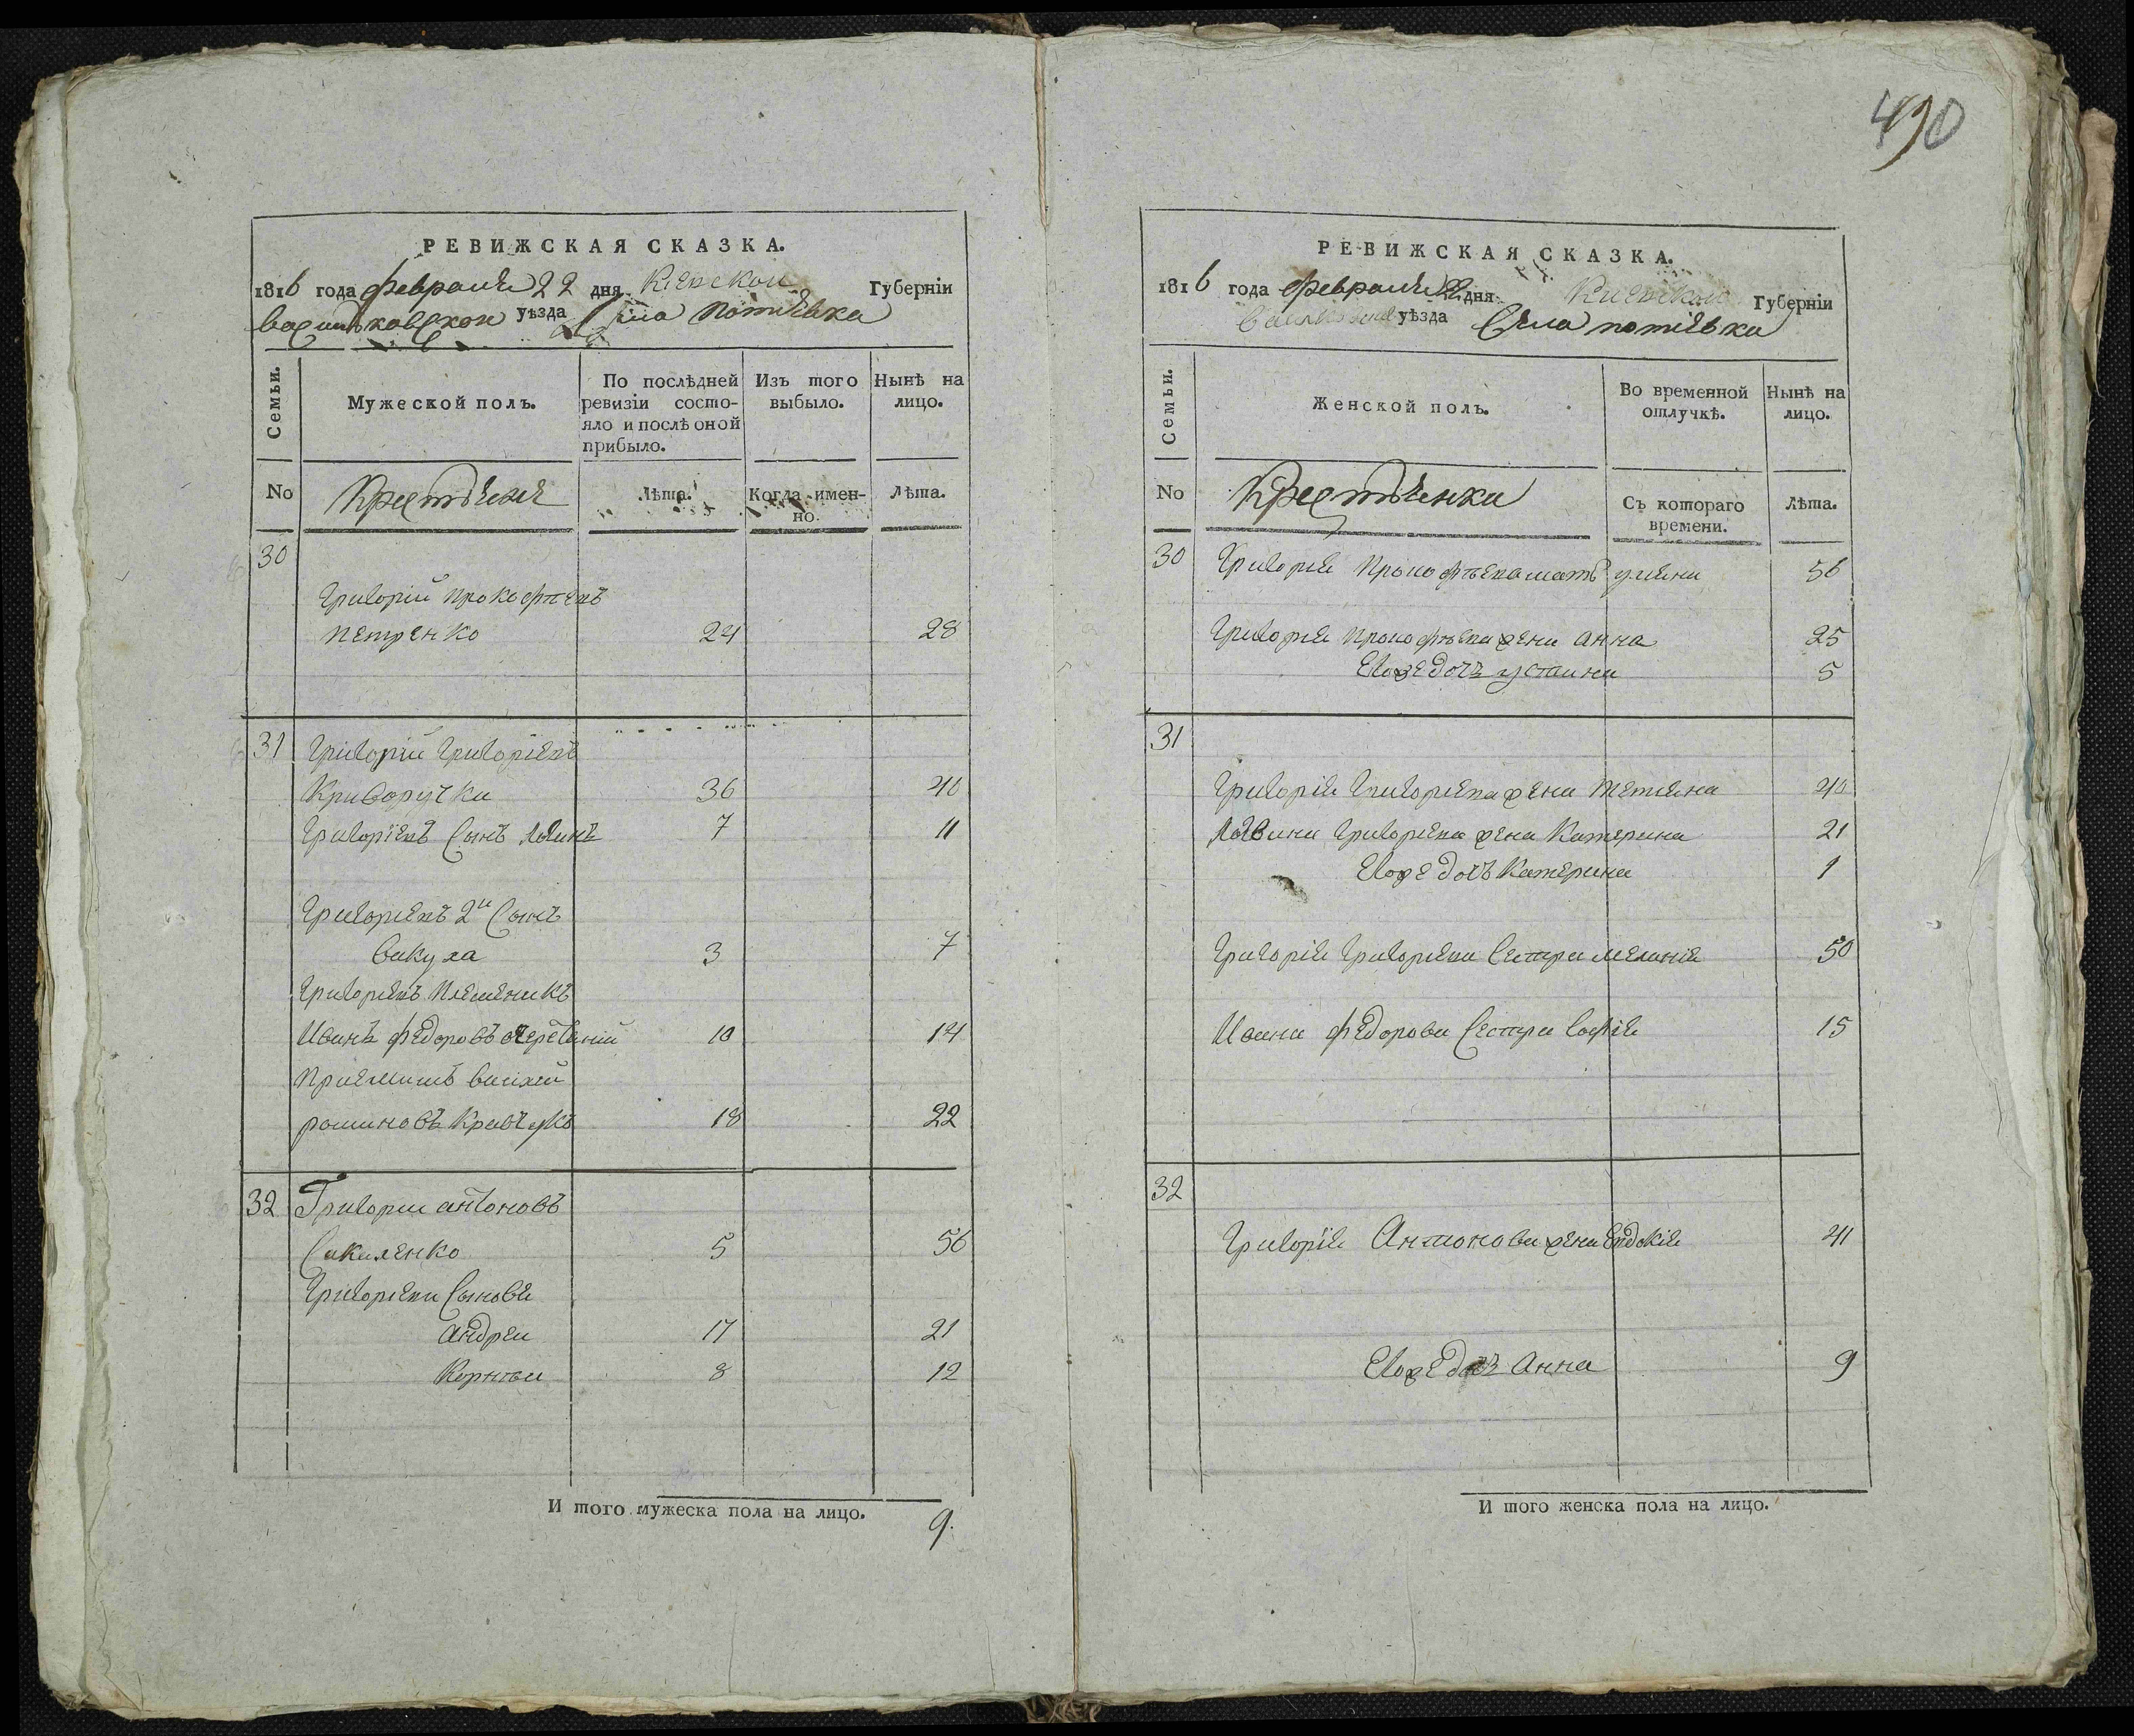 490
РЕВИЖСКАЯ СКАЗКА.
1816 года февраля 22 дня Киевской Губерніи
васильковской уѣзда Села потіевка
Семьи.
Мужеской полъ.
По послѣдней ревизіи состояло и послѣ оной прибыло.
Изъ того выбыло.
Нынѣ на лицо.
No
Крестьяне
Лѣта.
Когда именно.
Лѣта.
30
Григорій прокофьевъ
петренко 24 28
31 Григорій Григорієвъ
Криворучка 36 40
Григорієвъ Сынъ 7 11
Григориевъ 2й Сынъ
вакула 3 7
Григориевъ племеникъ
Иванъ федоровъ 10 14
Приемишъ
романовъ Кравчукъ 18 22
32 Григории антоновъ
Сакаленко 5 56
Григориева Сынове
андреи 17 21
Корнѣи 8 12
И того мужеска пола на лицо. 9.
РЕВИЖСКАЯ СКАЗКА.
1816 года февраля 22 дня Киевской Губерніи
уѣзда Села потіевка
Семьи.
Женской полъ.
Во временной отлучкѣ.
Нынѣ на лицо.
No
Крестьянки
Съ котораго времени.
Лѣта.
30 Григория Прокофьева мать уляна 56
Григория прокофьева жена анна 25
Егоже дочь устина 5
31
Григорія Григориева жена Татияна 40
Григориева жена Катерина 21
Егоже дочь Катерина 1
Григорія Григориева Сестра мелания 50
Ивана федорова Сестра Софія 15
32
Григорія Антонова жена Евдокія 41
Егоже дочь Анна 9
И того женска пола на лицо.